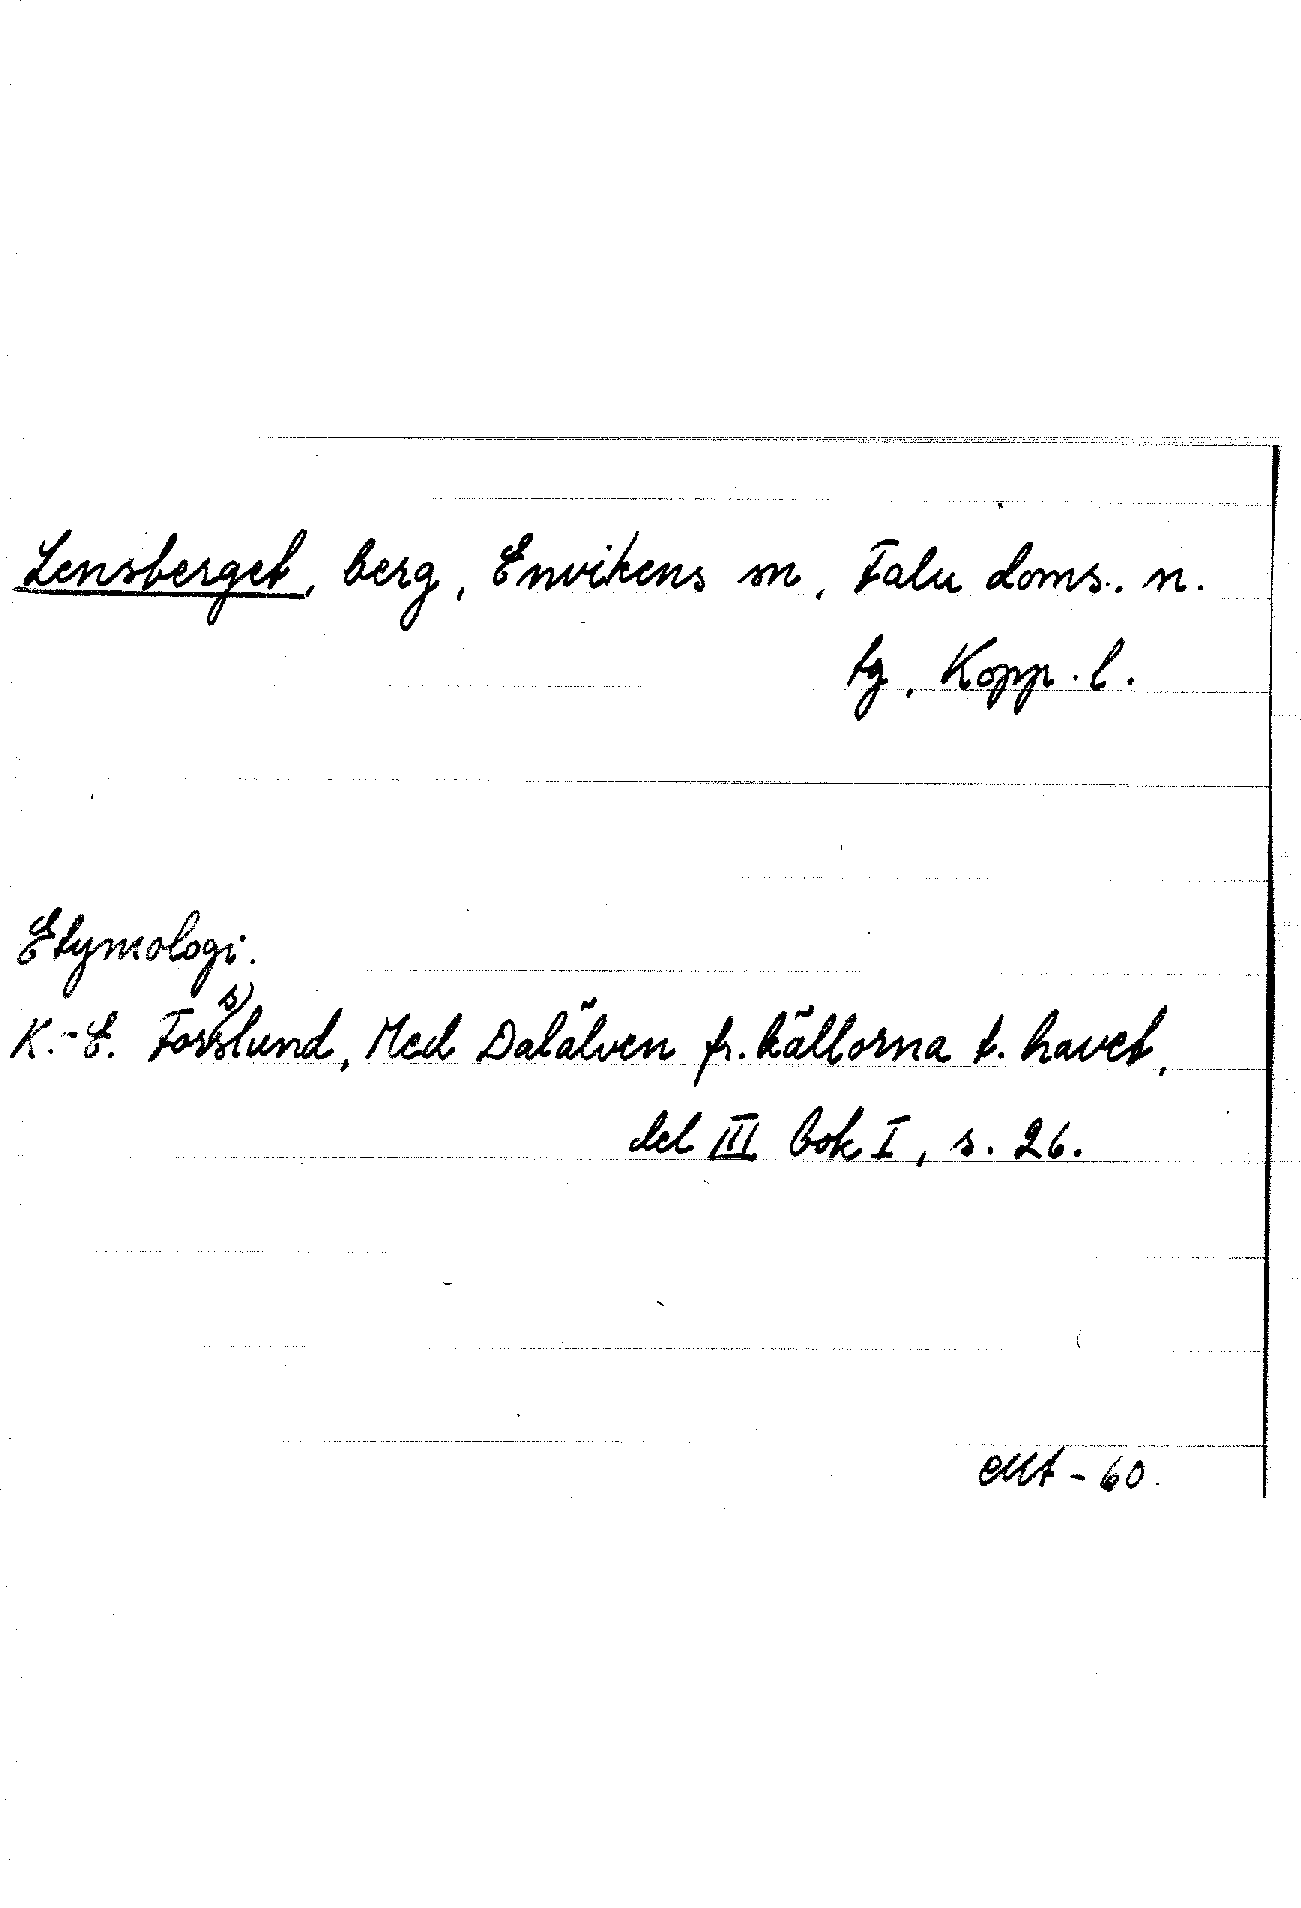 Lensberget, berg, Envikens sn, Falu doms. n.
tg, Kopp. l.
Etymologi.
K.-E. Forsslund, Med Dalälven fr. källorna t. havet,
del III bok I, s. 26.
-60.